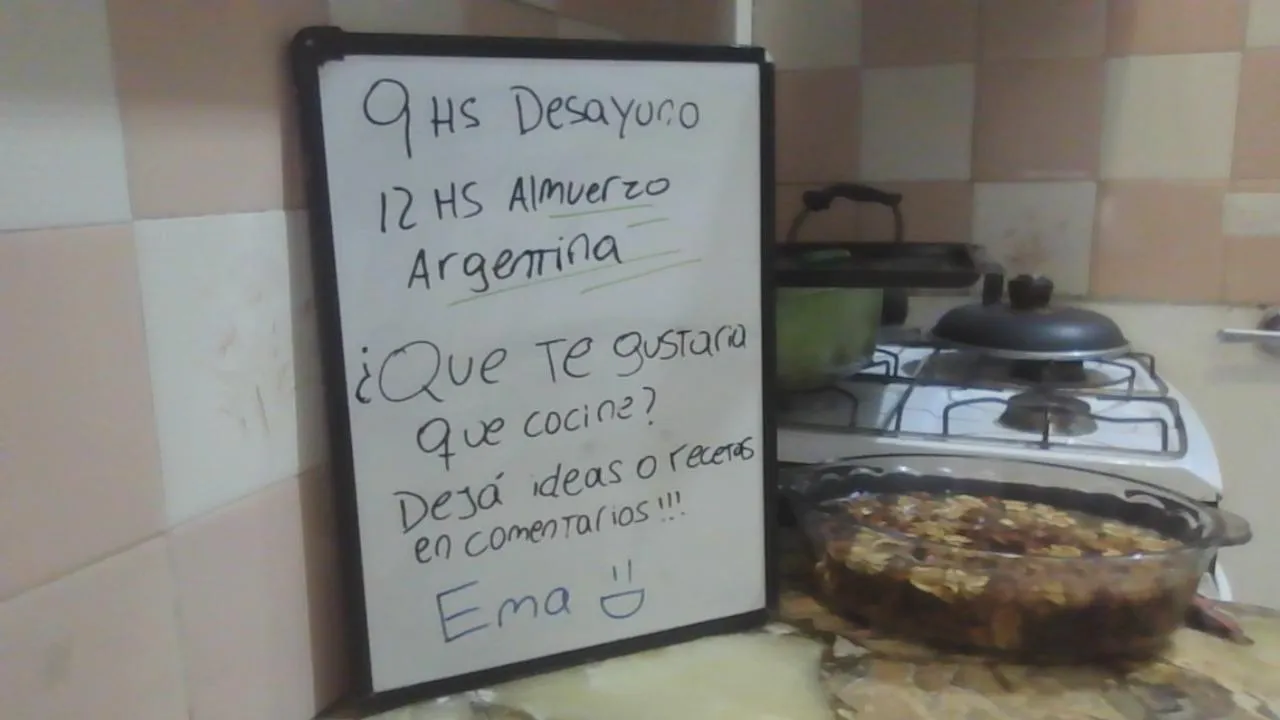 9 HS Desayuno
12 HS Almuerzo
Argentina
¿Que Te gustaria
que cocine?
Dejá ideas o recetas
en comentarios!!!
Ema